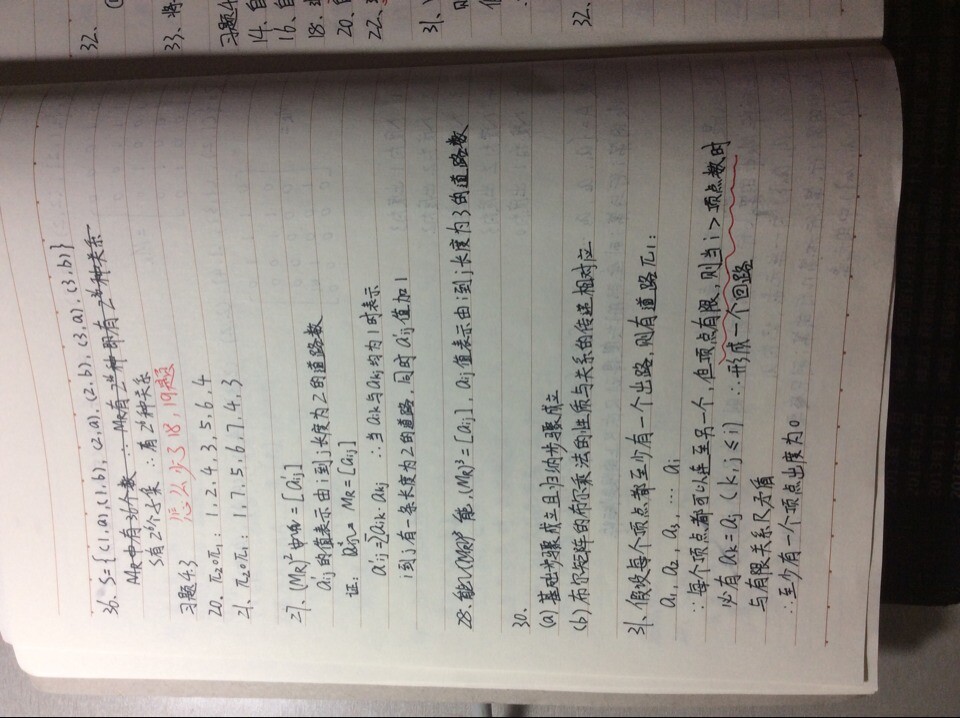 36、S={(1,a),(1,b),(2,a),(2,b),(3,a),(3,b)}
MR中有36个数 ∴MR有2^36种即有2^36种关系
S有2^6个子集 ∴有2^6种关系
习题4.3 怎么少了18,19题
20、π2∘π1: 1,2,4,3,5,6,4
21、π2∘π1: 1,7,5,6,7,4,3
27、(MR)² = [a'ij]
a'ij的值表示由i到j长度为2的道路数
证: MR=[aij]
a'ij=∑aik·akj ∴当aik与akj均为1时表示
i到j有一条长度为2的道路,同时a'ij值加1
28、能,(MR)³=[aij], aij值表示由i到j长度为3的道路数
30、
(a)基础步骤成立且归纳步骤成立
(b)布尔矩阵的布尔乘法的性质与关系的传递相对应
31、假设每个顶点都至少有一个出路,则有道路π1:
a1, a2, a3, … ai
∵每个顶点都可以连至另一个,但顶点有限,则当i>顶点数时
必有ak=aj (k,j≤i) ∴形成一个回路
与有限关系R矛盾
∴至少有一个顶点出度为0
32、
33、将
习题4
14、自
16、自
18、
20、
22、
31、
32、